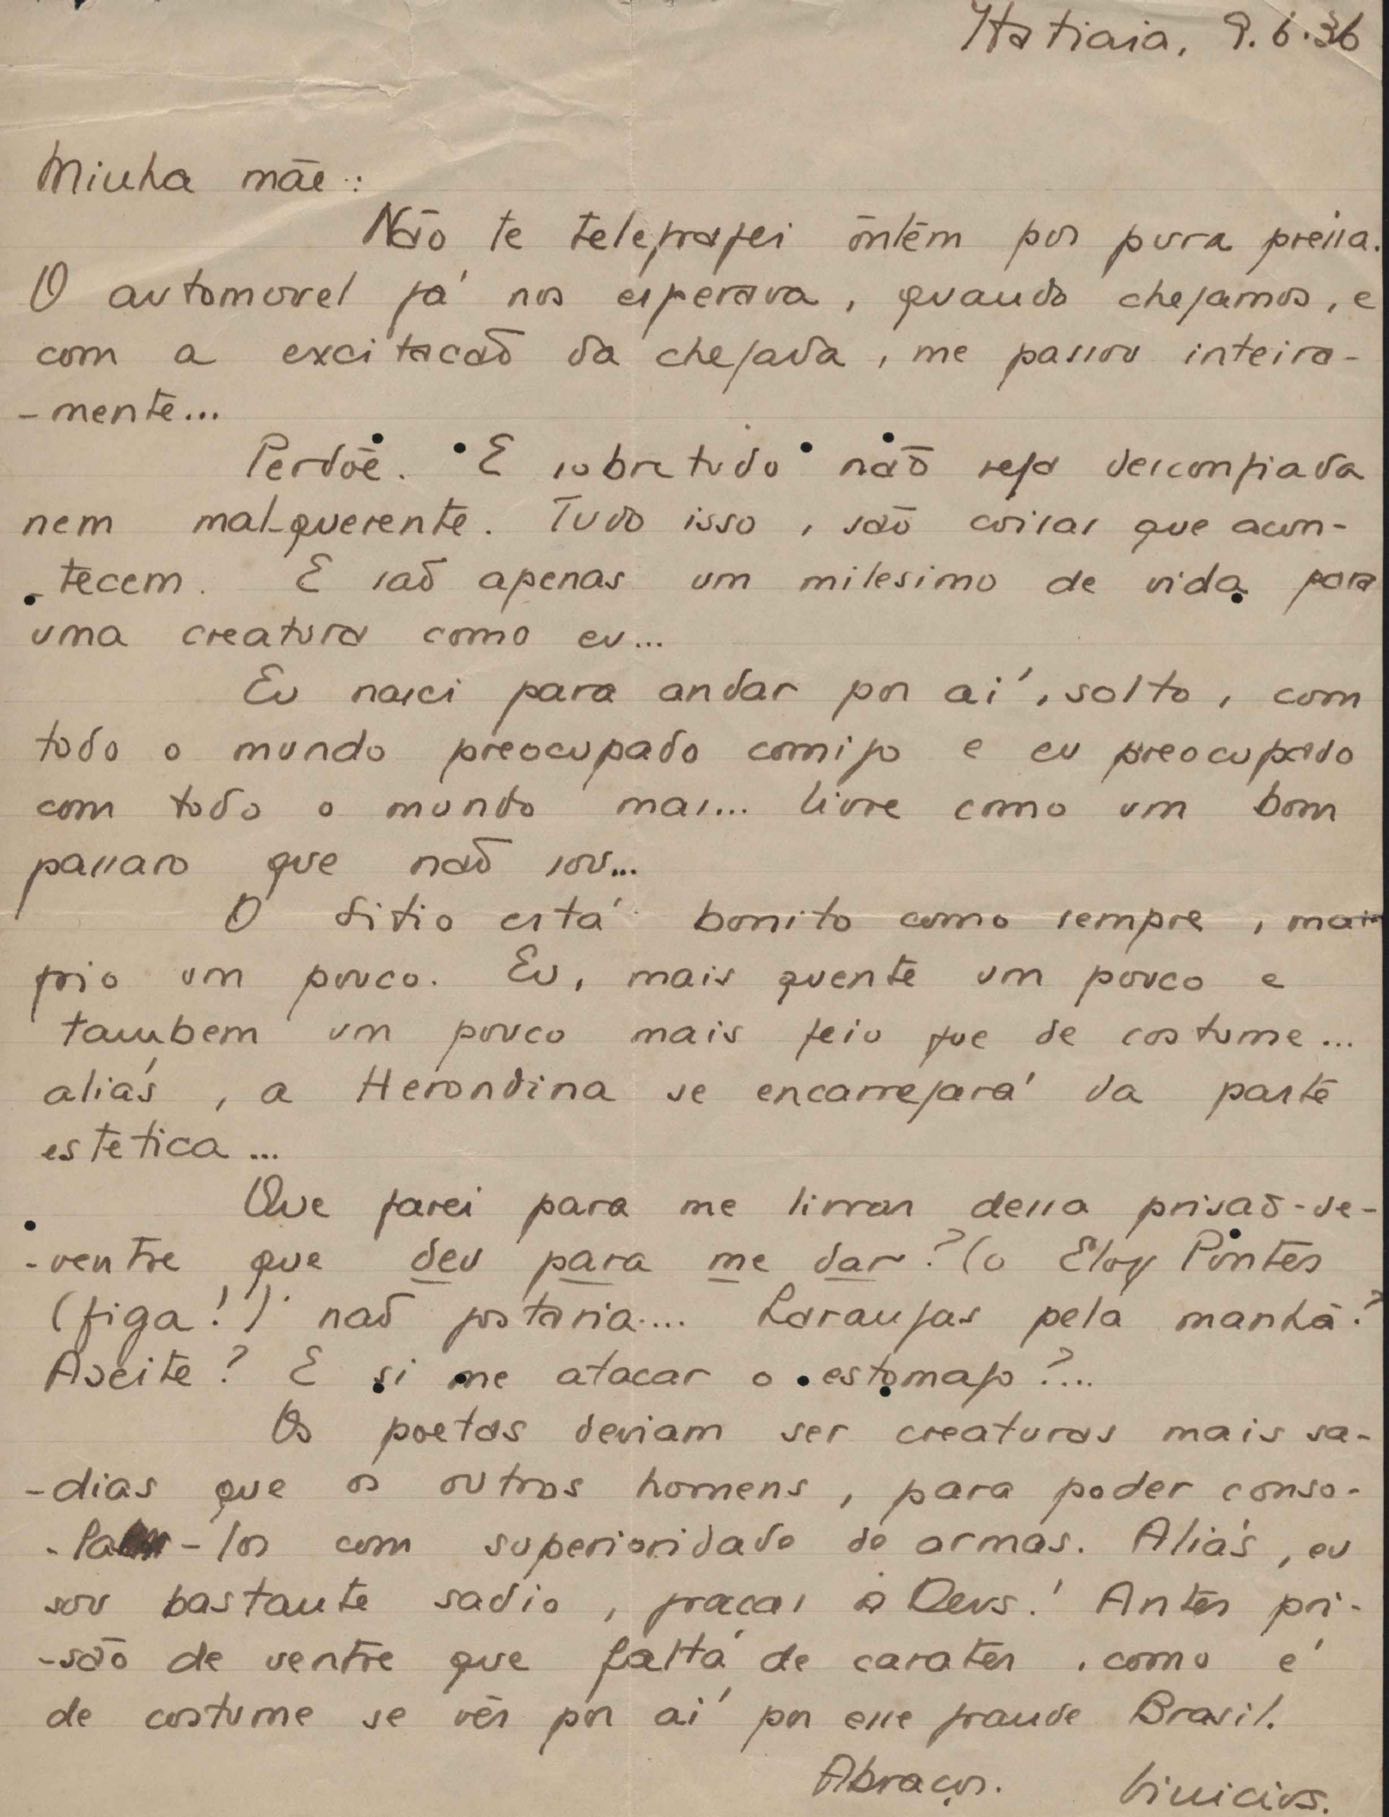 Itatiaia, 9.6.36
Minha mãe:
Não te telegrafei ôntêm por pura pressa.
O automovel já nos esperava, quando chegamos, e
com a excitacaõ da chegada, me passou inteira-
-mente...
Perdoê. E sobretudo naõ seja desconfiada
nem mal-querente. Tudo isso, saõ coisas que acon-
-tecem. E saõ apenas um milesimo de vida para
uma creatura como eu...
Eu nasci para andar por aí, solto, com
todo o mundo preocupado comigo e eu preocupado
com todo o mundo mas... livre como um bom
passaro que naõ sou...
O sitio está bonito como sempre, mais
frio um pouco. Eu, mais quente um pouco e
tambem um pouco mais feio que de costume...
aliás, a Herondina se encarregará da parte
estetica...
Que farei para me livrar dessa prisaõ-de-
-ventre que deu para me dar? (o Eloy Pontes
(figa!) naõ gostaria.... Laranjas pela manhã?
Azeite? E si me atacar o estomago?...
Os poetas deviam ser creaturas mais sa-
-dias que os outros homens, para poder conso-
-la-los com superioridade de armas. Aliás, eu
sou bastante sadio, graças a Deus! Antes pri-
-são de ventre que falta de carater, como é
de costume se vêr por aí por esse grande Brasil.
Abraços. Vinicius.